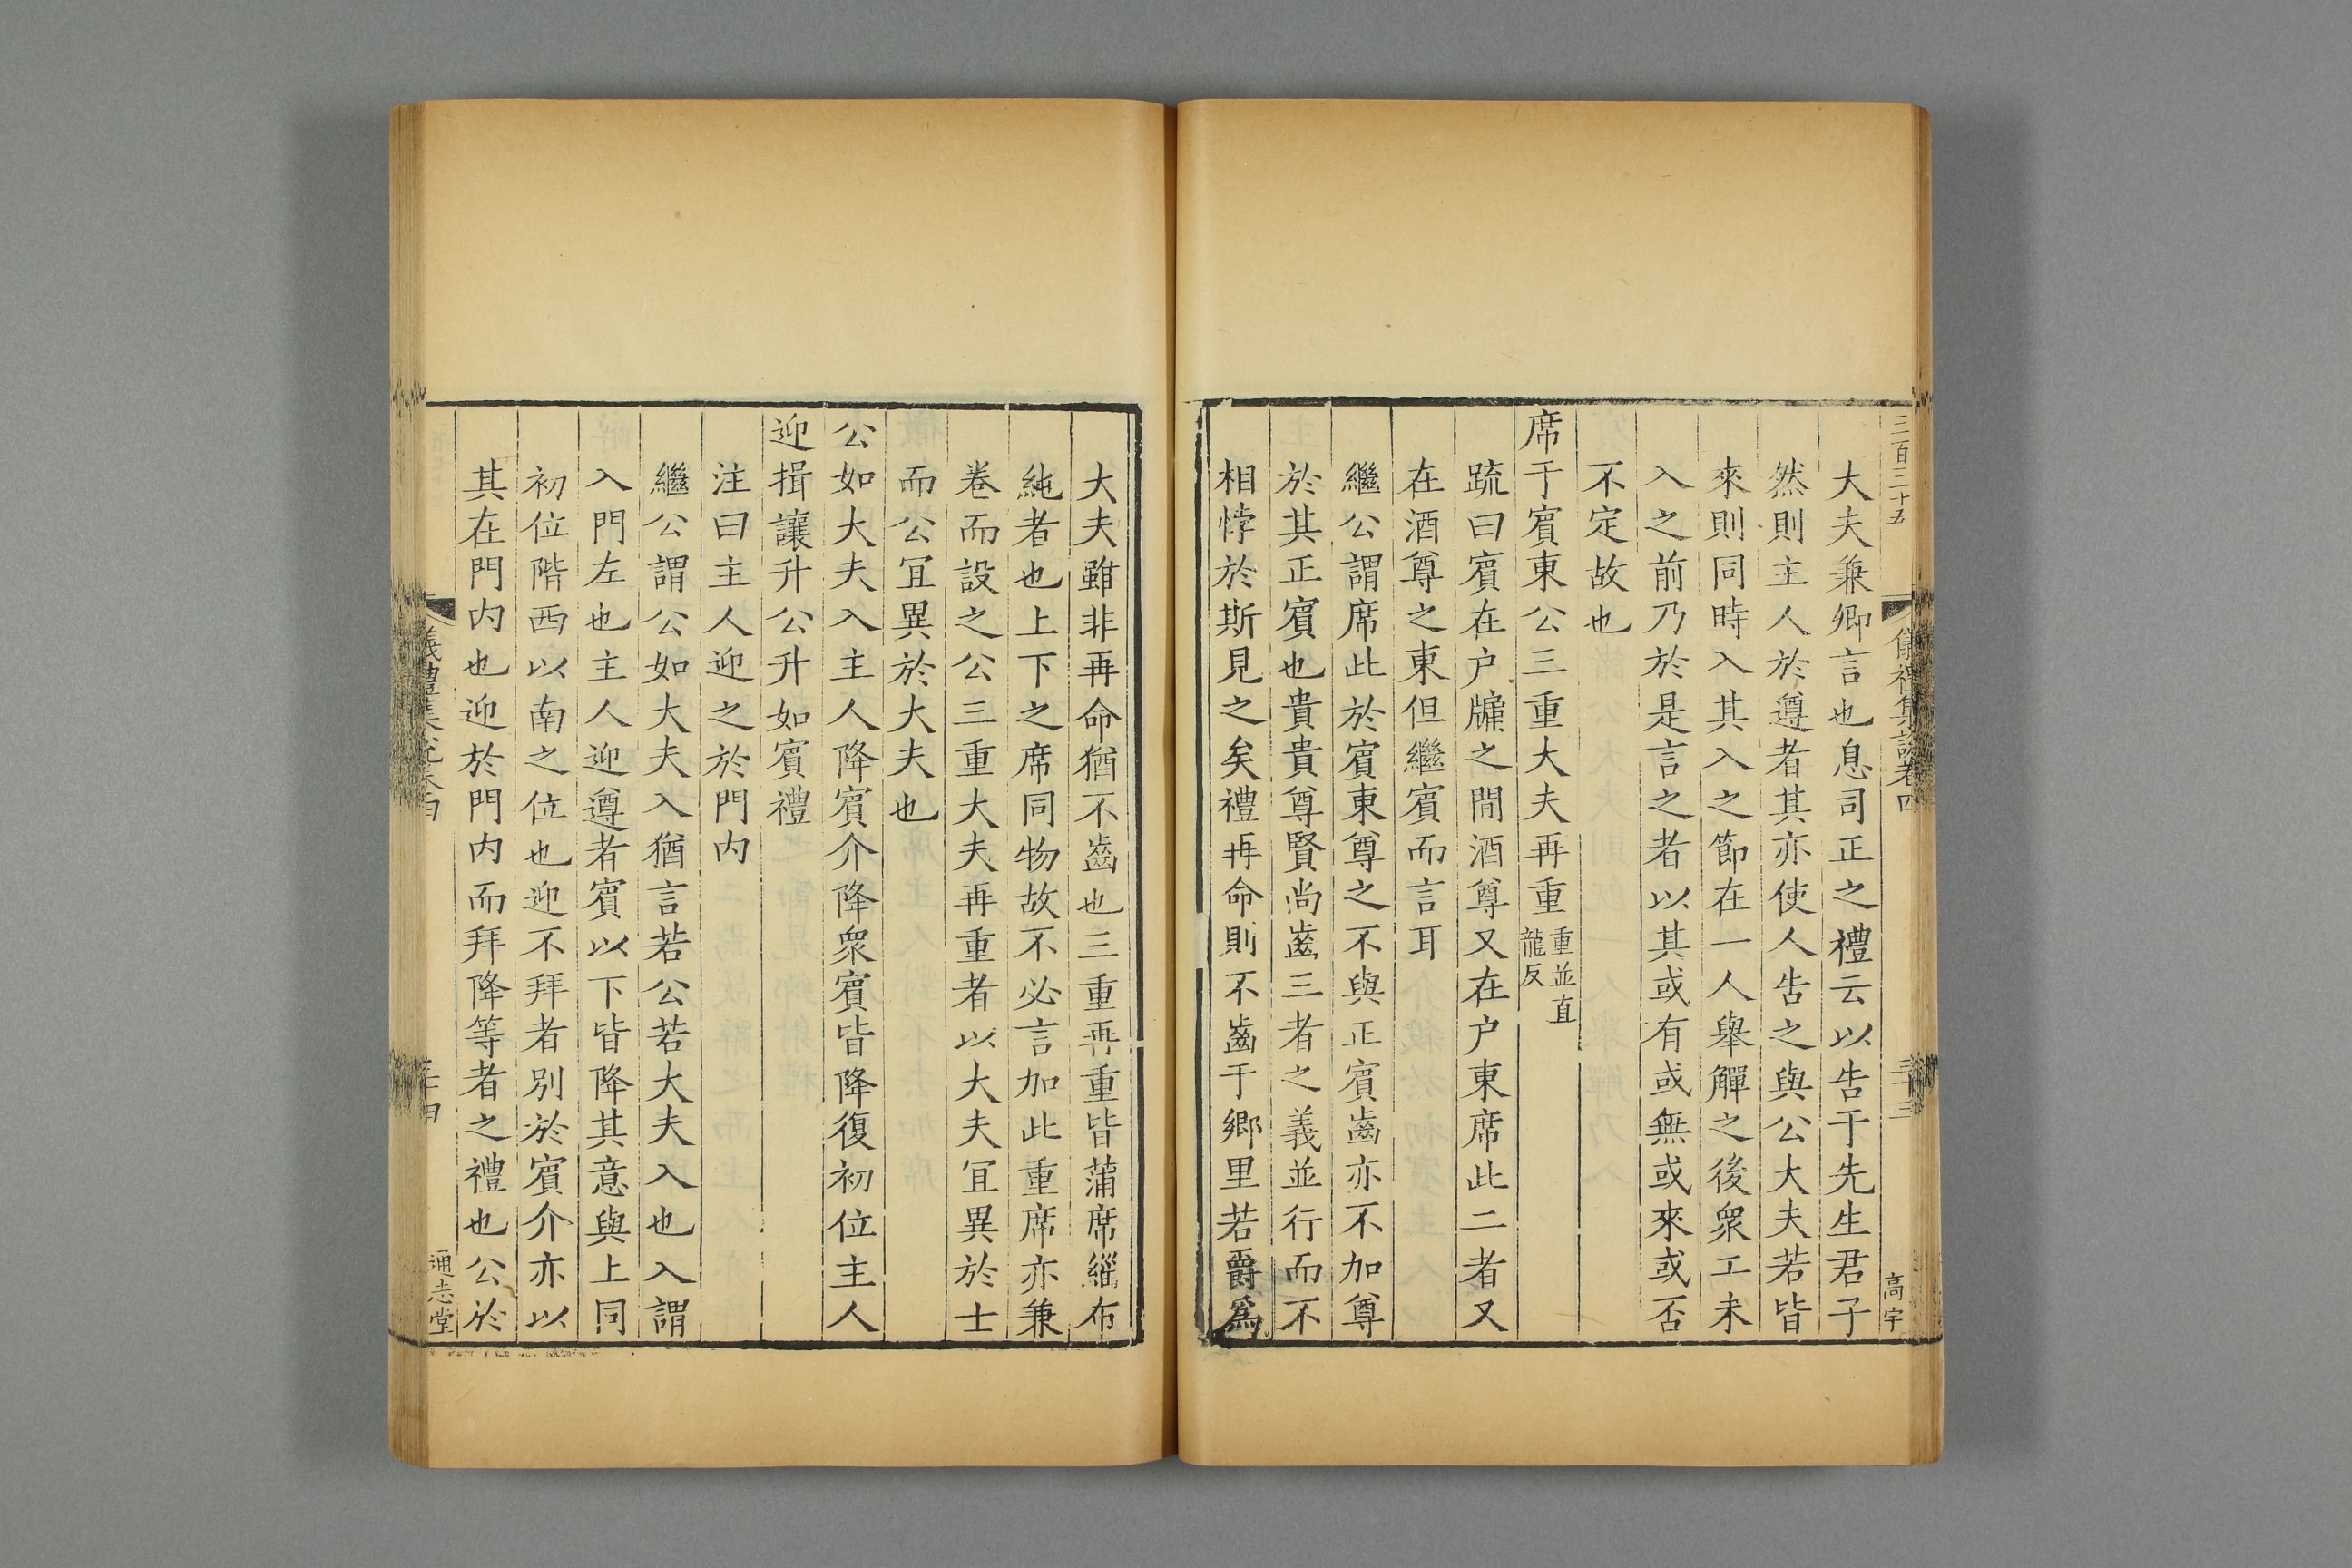 三百三十五
儀禮集說卷四
二十三
高宇
大夫兼卿言也息司正之禮云以告于先生君子
然則主人於遵者其亦使人告之與公大夫若皆
來則同時入其入之節在一人舉觶之後衆工未
入之前乃於是言之者以其或有或無或來或否
不定故也
席于賓東公三重大夫再重重並直龍反
疏曰賓在户牖之閒酒尊又在户東席此二者又
在酒尊之東但繼賓而言耳
繼公謂席此於賓東尊之不與正賓齒亦不加尊
於其正賓也貴貴尊賢尚齒三者之義並行而不
相悖於斯見之矣禮再命則不齒于鄉里若爵爲
大夫雖非再命猶不齒也三重再重皆蒲席緇布
純者也上下之席同物故不必言加此重席亦兼
卷而設之公三重大夫再重者以大夫宜異於士
而公宜異於大夫也
公如大夫入主人降賓介降衆賓皆降復初位主人
迎揖讓升公升如賓禮
注曰主人迎之於門内
繼公謂公如大夫入猶言若公若大夫入也入謂
入門左也主人迎遵者賓以下皆降其意與上同
初位階西以南之位也迎不拜者別於賓介亦以
其在門内也迎於門内而拜降等者之禮也公於
儀禮集說卷四
二十四
通志堂